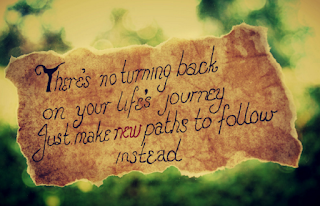 There's no turning back
on your life's journey
Just make new paths to follow
instead